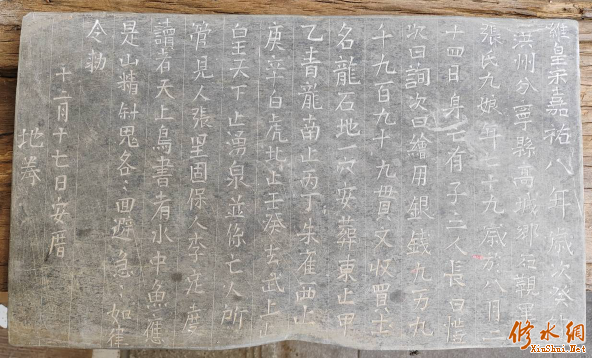 維皇宋嘉祐八年歲次癸
洪州分寧縣高城鄉觀里
張氏九娘年七十九歲於八月二
十四日身亡有子三人長曰
次曰詢次曰繪用銀錢九万九
千九百九十九貫文收買土
名龍石地一穴安葬東止甲
乙青龍南止丙丁朱雀西止
庚辛白虎北止壬癸玄武上
白王天下止湧泉並係亡人所
管見人張里固保人李定度
讀者天上鳥書者水中魚應
是山精鬼各〻迴避急〻如律
令勅
十二月十七日安厝
地券
修水網
XiuShui.Net